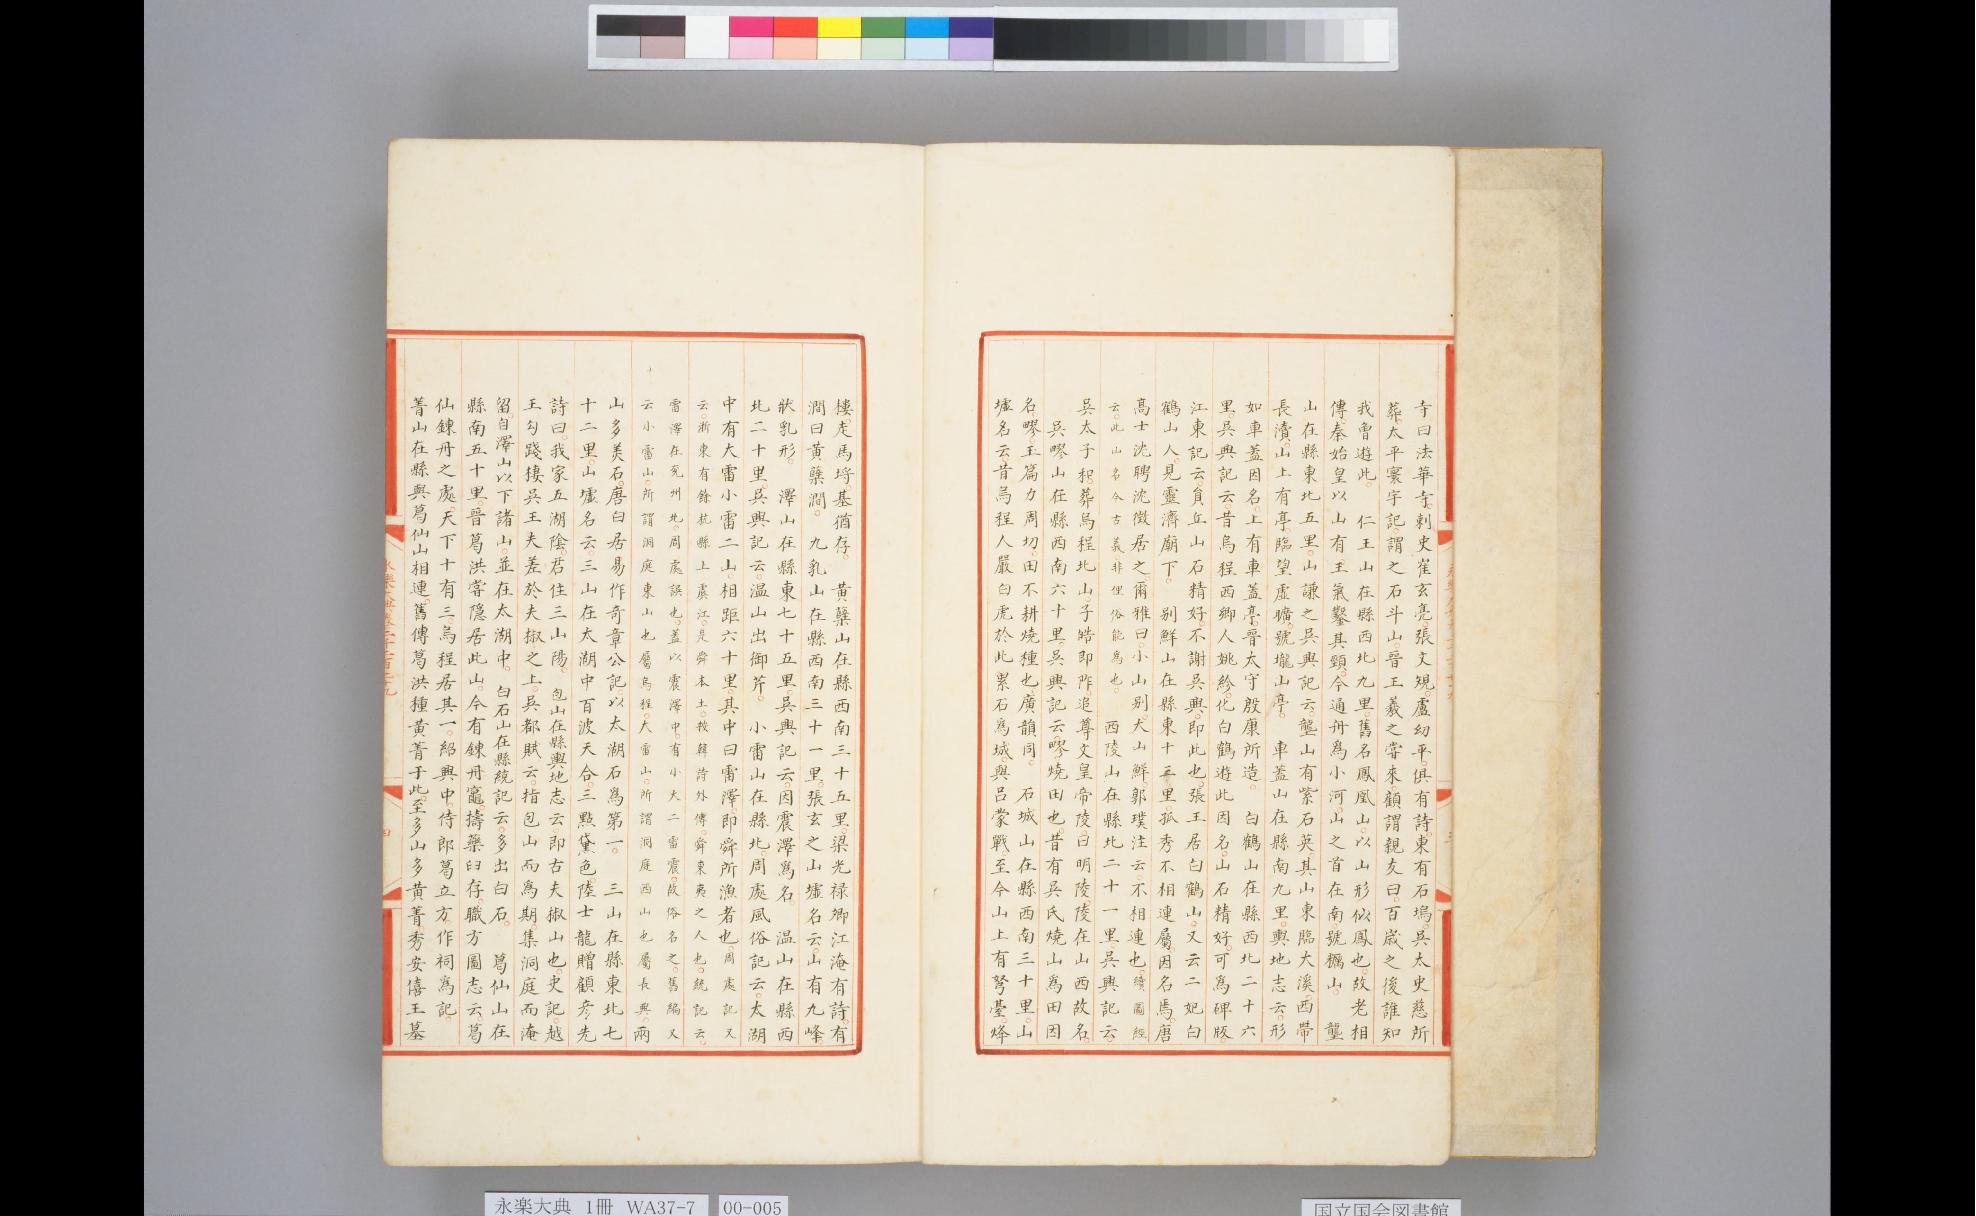 寺曰法華寺刺史崔玄亮張文規盧幼平俱有詩東有石塢吳太史慈所
葬太平寰宇記謂之石斗山晉王羲之嘗來顧謂親友曰百歲之後誰知
我曾遊此 仁王山在縣西北九里舊名鳳凰山以山形似鳳也故老相
傳秦始皇以山有王氣鑿其頸今通舟爲小河山之首在南號獼山 壟
山在縣東北五里山謙之吳興記云壟山有紫石英其山東臨大溪西帶
長瀆山上有亭臨望虛曠號壠山亭 車蓋山在縣南九里輿地志云形
如車蓋因名上有車蓋亭晉太守殷康所造 白鶴山在縣西北二十六
里吳興記云昔烏程西鄉人姚紾化白鶴遊此因名山石精好可爲碑版
江東記云貟丘山石精好不謝吳興即此也張王居白鶴山又云二妃白
鶴山人見靈濟廟下 别鮮山在縣東十三里孤秀不相連屬因名焉唐
高士沈聘沈徵居之爾雅曰小山别大山鮮郭璞注云不相連也續圖經
云此山名今古義非俚俗能爲也 西陵山在縣北二十一里吳興記云
吳太子和葬烏程北山子皓即阼追尊文皇帝陵曰明陵陵在山西故名
吳疁山在縣西南六十里吳興記云疁燒田也昔有吳氏燒山爲田因
名疁玉篇力周切田不耕燒種也廣韻同 石城山在縣西南三十里山
墟名云昔烏程人嚴白虎於此累石爲城與呂蒙戰至今山上有弩臺烽
樓走馬埒基猶存 黄蘗山在縣西南三十五里梁光禄卿江淹有詩有
澗曰黄蘗澗 九乳山在縣西南三十一里張玄之山墟名云山有九峰
狀乳形 澤山在縣東七十五里吳興記云因震澤爲名 温山在縣西
北二十里吳興記云温山出御荈 小雷山在縣北周處風俗記云太湖
中有大雷小雷二山相距六十里其中曰雷澤即舜所漁者也周處記又
云浙東有餘杭縣上虞江是舜本土按韓詩外傳舜東夷之人也統記云
雷澤在兖州北周處誤也蓋以震澤中有小大二雷震故俗名之舊編又
云小雷山所謂洞庭東山也屬烏程大雷山所謂洞庭西山也屬長興兩
山多美石唐白居易作奇章公記以太湖石爲第一 三山在縣東北七
十二里山墟名云三山在太湖中百波天合三點黛色陸士龍贈顧彦先
詩曰我家五湖陰君住三山陽 包山在縣輿地志云即古夫椒山也史記越
王勾踐棲吳王夫差於夫椒之上吳都賦云指包山而爲期集洞庭而淹
留自澤山以下諸山並在太湖中 白石山在縣統記云多出白石 葛仙山在
縣南五十里晉葛洪嘗隱居此山今有鍊丹竈擣藥臼存職方圖志云葛
仙鍊丹之處天下十有三烏程居其一紹興中侍郎葛立方作祠爲記
菁山在縣與葛仙山相連舊傳葛洪種黄菁于此至多山多黄菁秀安僖王墓
永楽大典 1冊 WA37-7 00-005
国立国会図書館